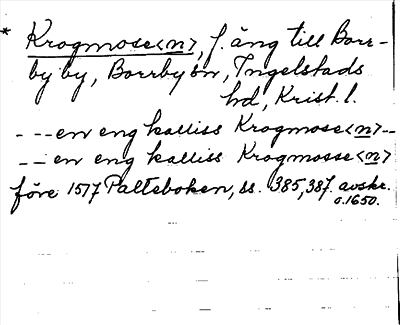 * Krogmose<n>, f. äng till Borr-
by by, Borrby sn, Ingelstads
hd, Krist. l.
- - - en eng kalliss Krogmose<n> - -
- - - en eng kalliss Krogmosse<n>
före 1517 Palteboken, ss. 385, 387. avskr.
c. 1650.